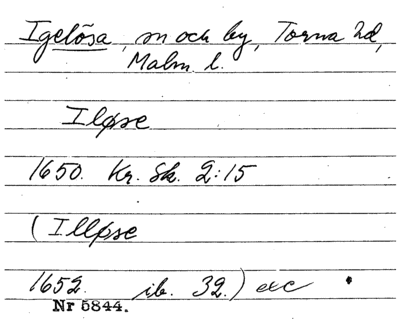 Igelösa, sn och by, Torna hd,
Malm. l.
Iløse
1650. Kr. Sk. 2:15
(Illøse
1652. ib. 32.) exc
Nr 5844.